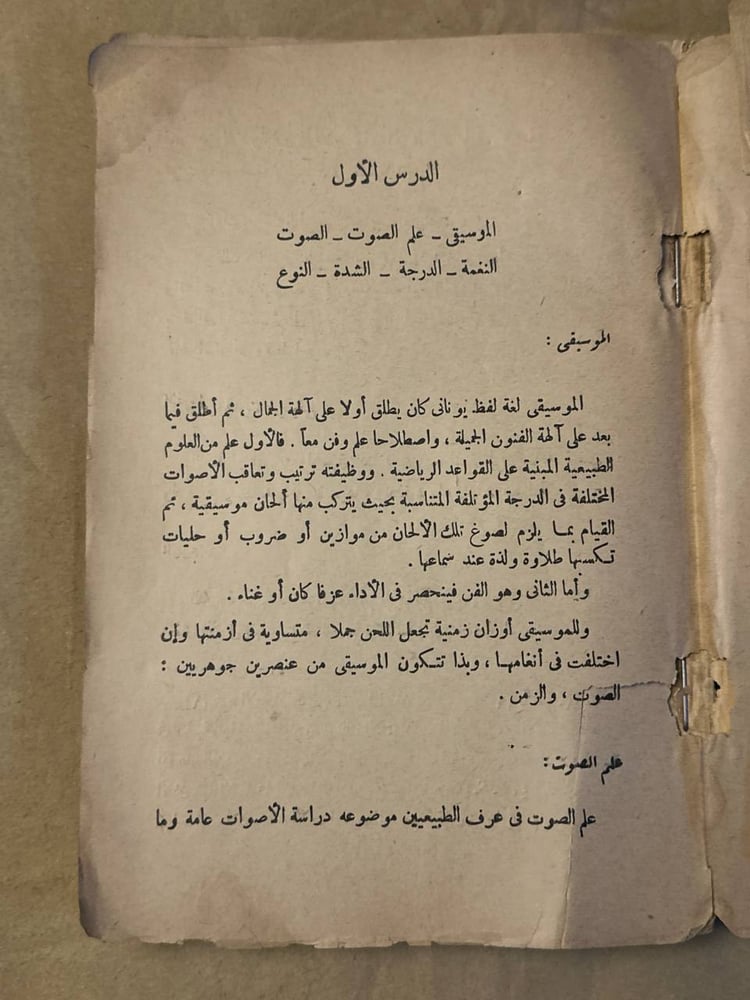 الدرس الأول
الموسيقى – علم الصوت – الصوت
النغمة – الدرجة – الشدة – النوع
الموسيقى :
الموسيقى لغة لفظ يونانى كان يطلق أولا على آلهة الجمال ، ثم أطلق فيما
بعد على آلهة الفنون الجميلة ، واصطلاحا علم وفن معاً . فالأول علم من العلوم
الطبيعية المبنية على القواعد الرياضية . ووظيفته ترتيب وتعاقب الأصوات
المختلفة فى الدرجة المؤتلفة المتناسبة بحيث يتركب منها ألحان موسيقية ، ثم
القيام بما يلزم لصوغ تلك الألحان من موازين أو ضروب أو حليات
تكسبها طلاوة ولذة عند سماعها .
وأما الثانى وهو الفن فينحصر فى الأداء عزفا كان أو غناء .
وللموسيقى أوزان زمنية تجعل اللحن جملا ، متساوية فى أزمنتها وإن
اختلفت فى أنغامها ، وبذا تتكون الموسيقى من عنصرين جوهريين :
الصوت ، والزمن .
علم الصوت :
علم الصوت فى عرف الطبيعيين موضوعه دراسة الأصوات عامة وما